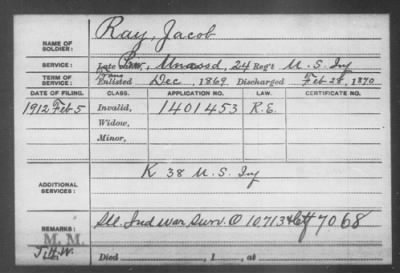 NAME OF SOLDIER: Ray, Jacob
SERVICE: Late Pvt, Unassd, 24 Reg't U. S. Inf
TERM OF SERVICE: Trans Enlisted Dec, 1869 Discharged Feb 28, 1870
DATE OF FILING. CLASS. APPLICATION NO. LAW. CERTIFICATE NO.
1912 Feb 5 Invalid, 1401453 R.E.
Widow,
Minor,
ADDITIONAL SERVICES: K 38 U. S. Inf
REMARKS: See Ind War Surv. O 10713 & Ctf 7068
M. M.
J.H.W. Died , 1 , at